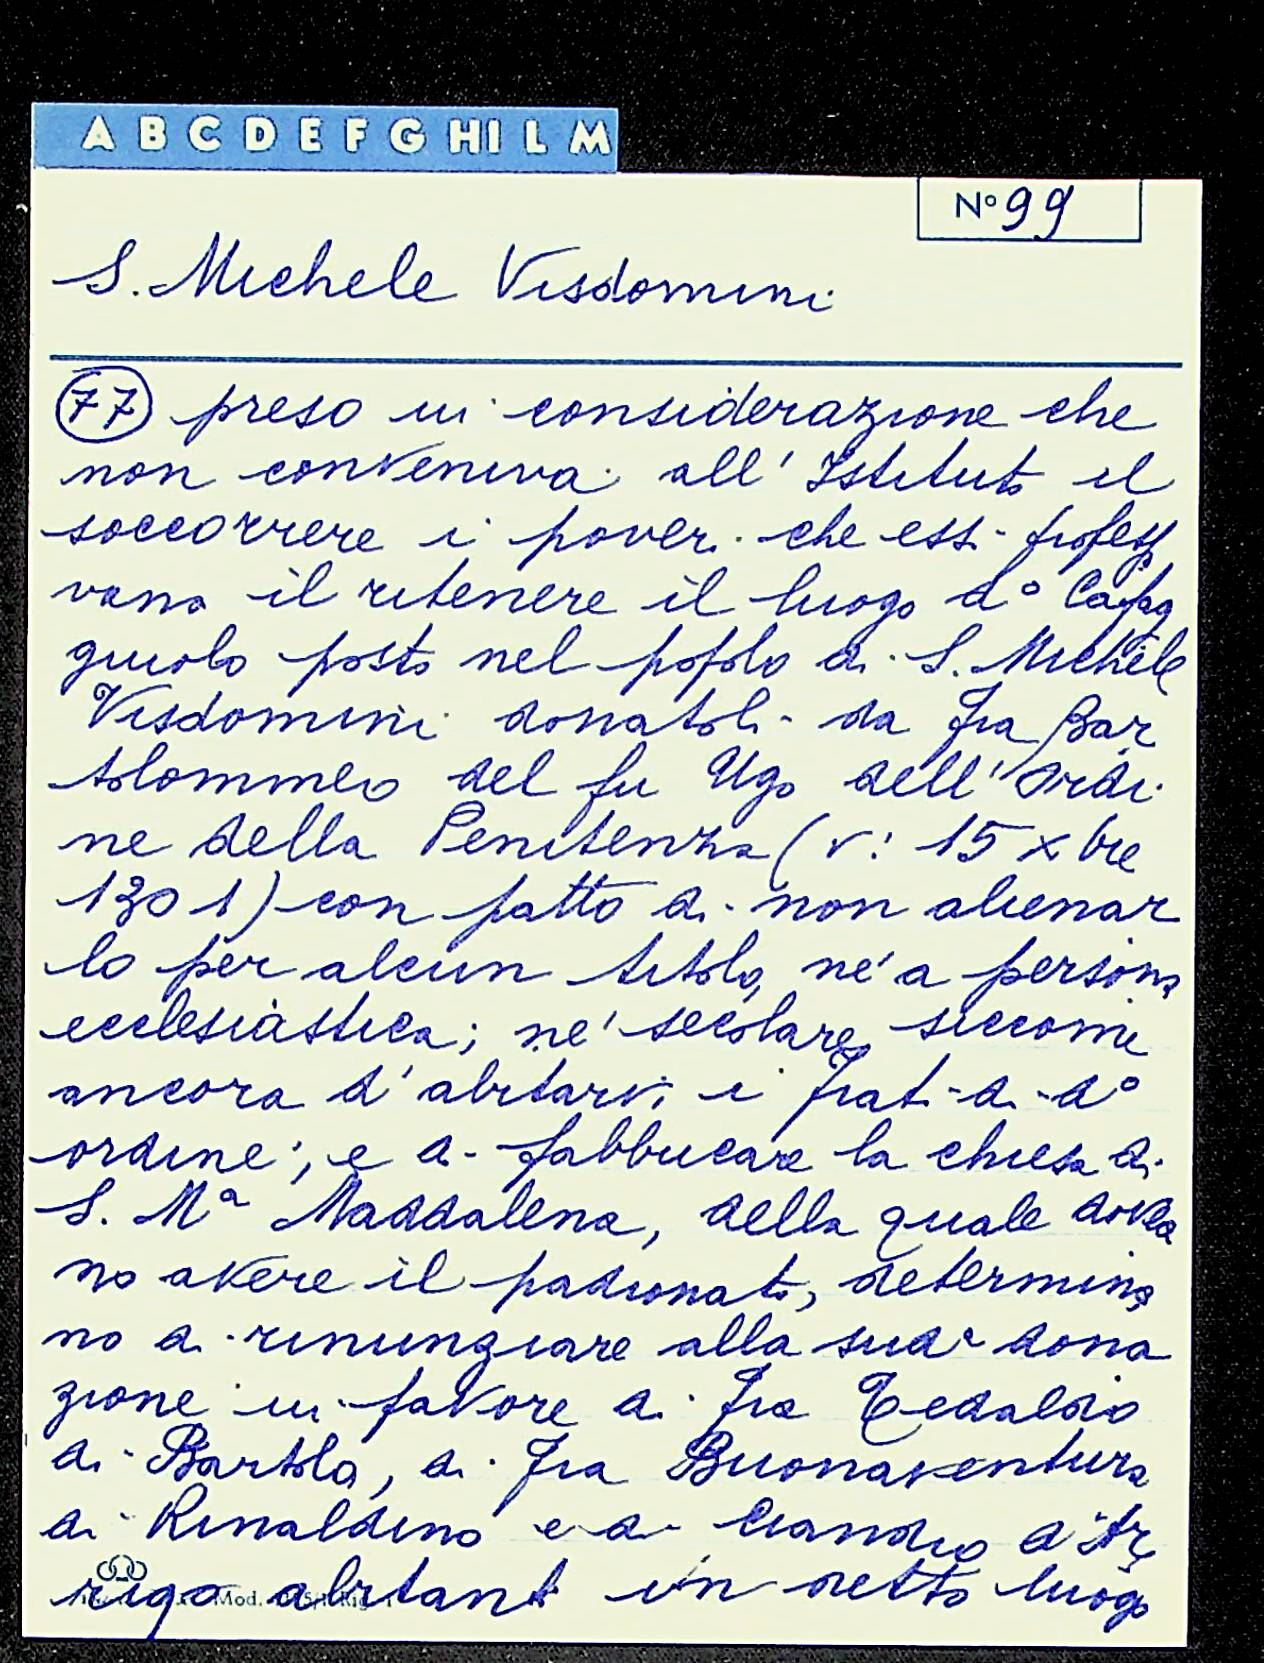 A B C D E F G HI L M
N° 99
S. Michele Visdomini
77 preso in considerazione che
non conveniva all' Istituto il
soccorrere i poveri che essi professa
vano il ritenere il luogo d° Cafag
giuolo posto nel popolo di S. Michele
Visdomini donatoli da Fra Bar
tolommeo del fu Ugo dell' Ordi
ne della Penitenza (v: 15 xbre
1301) con patto di non alienar
lo per alcun titolo, nè a persona
ecclesiastica; nè secolare, siccome
ancora d' abitarvi i frati di d°
ordine; e di fabbricare la chiesa di
S. Mª Maddalena, della quale dovea
no avere il padronato, determina
no di rinunziare alla sudª dona
zione in favore di Fra Tedaldo
di Bartolo, di Fra Buonaventura
di Rinaldino e di d' Ar
rigo abitanti in detto luogo
Mod.